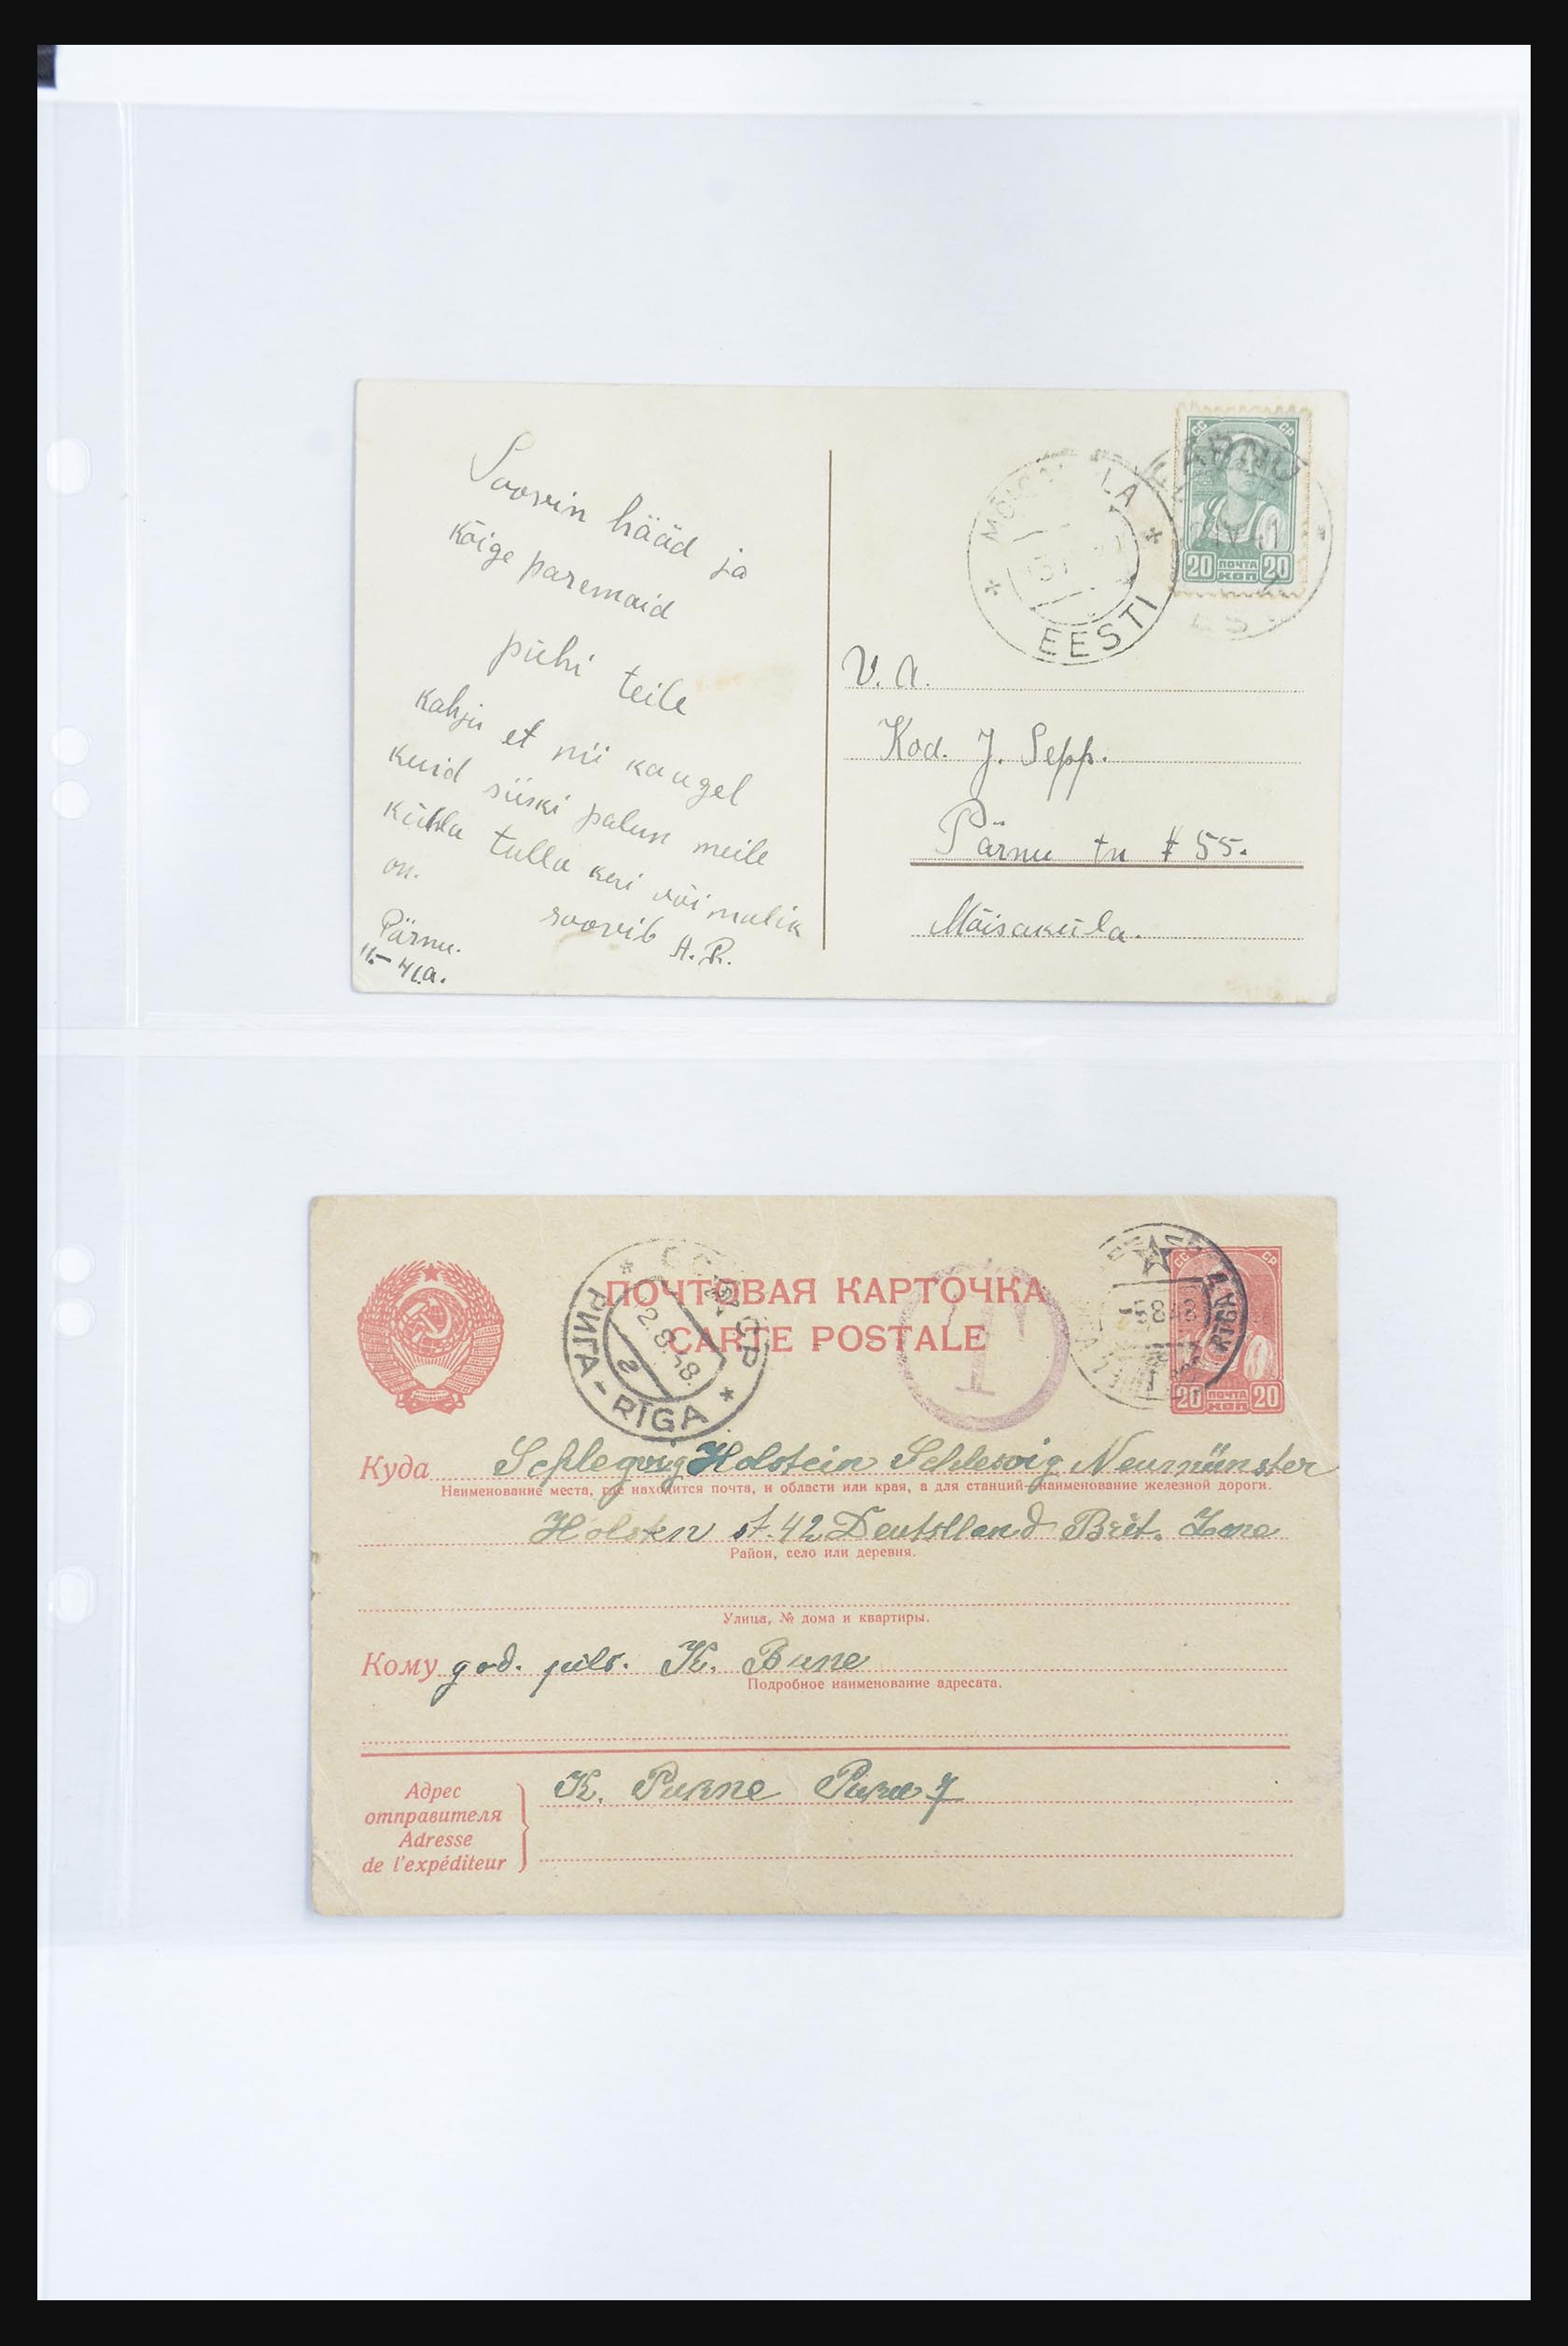 Soovin hääd ja
kõige paremaid
pühi teile
kahju et nii kaugel
kuid siiski palun meile
külla tulla kui võimalik
on.
soovib A. R.
Pärnu.
41.a.
EESTI
PÄRNU
СС СР
20 ПОЧТА 20
КОП
V. A.
Kod. J. Sepp.
Pärnu tn # 55.
Mõisaküla.
ПОЧТОВАЯ КАРТОЧКА
CARTE POSTALE
РИГА - RIGA
2.8.48.
T
RIGA
СС СР
20 ПОЧТА 20
КОП
Куда Schlegvig Holstein Schlesvig Neumünster
Наименование места, где находится почта, и области или края, а для станций наименование железной дороги.
Holsten st. 42 Deutslland Brit. Zone
Район, село или деревня.
Улица, № дома и квартиры.
Кому god. pils. K. Bune
Подробное наименование адресата.
Адрес
отправителя
Adresse
de l'expéditeur
K. Purne 7